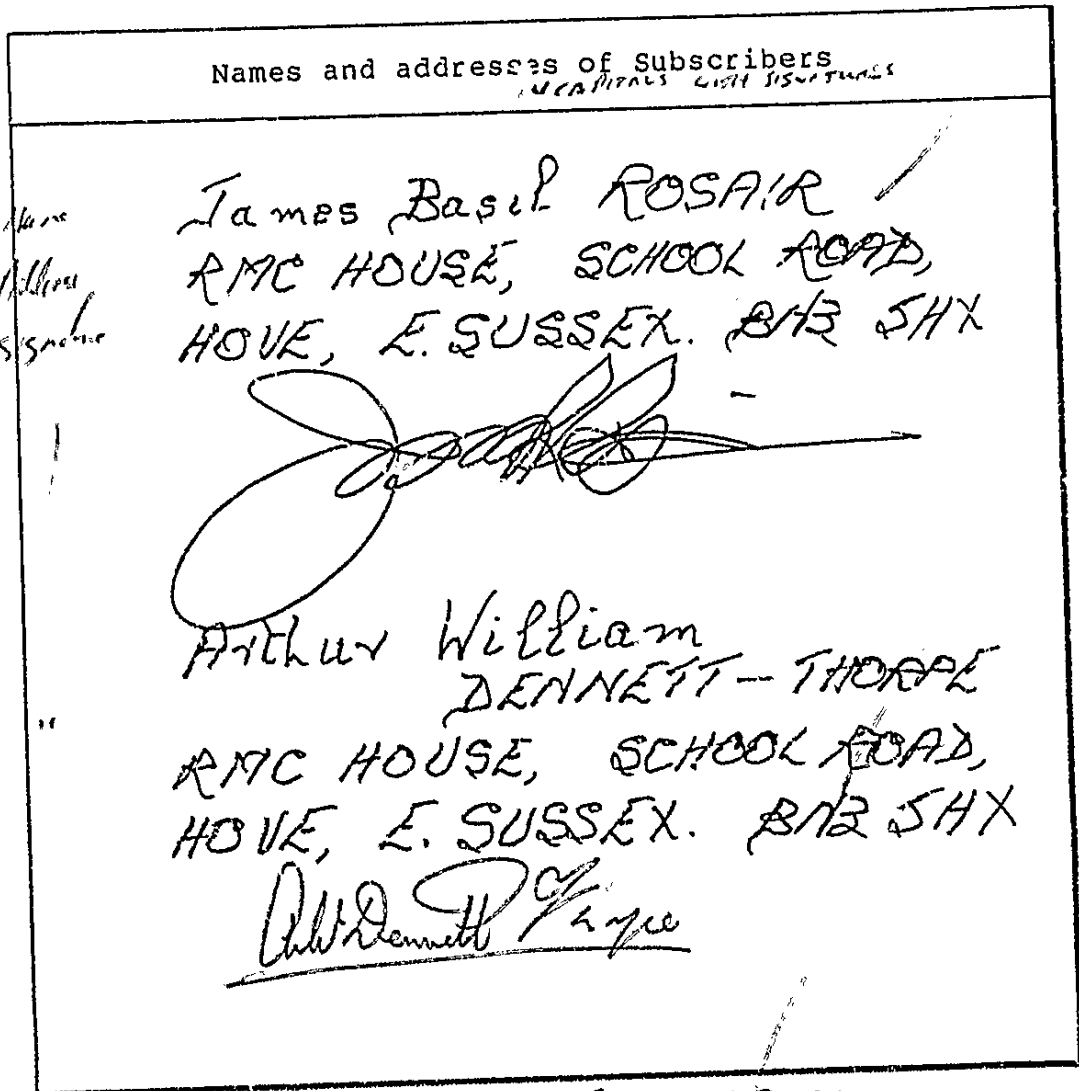 Names and addresses of Subscribers
IN CAPITALS WITH SIGNATURES
Name
James Basil ROSAIR
Address
RMC HOUSE, SCHOOL ROAD,
Signature
HOVE, E. SUSSEX. BN3 5HX
Arthur William
DENNETT - THORPE
"
RMC HOUSE, SCHOOL ROAD,
HOVE, E. SUSSEX. BN3 5HX
AW Dennett Thorpe